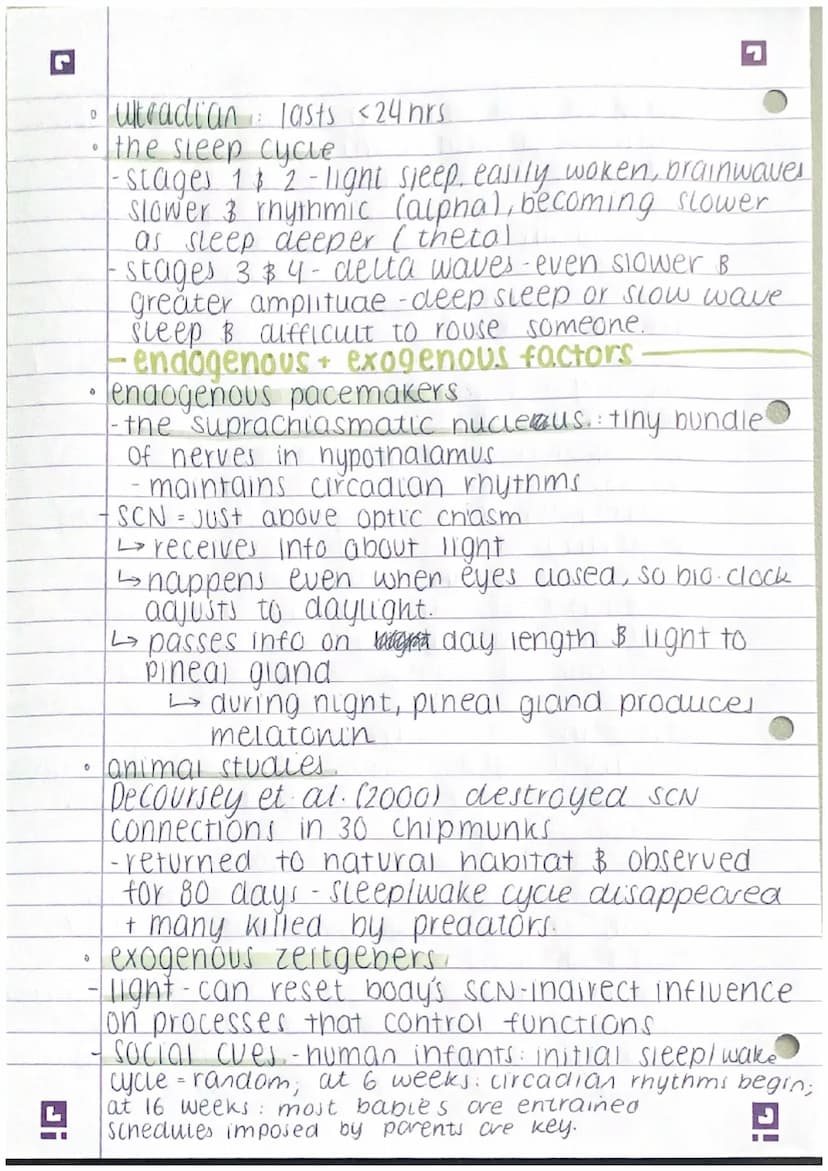 • ultradian: lasts <24hrs
• the sleep cycle
- stages 1 & 2 - light sleep. easily woken, brainwaves
slower & rhythmic (alpha), becoming slower
as sleep deeper (theta)
- stages 3 & 4 - delta waves - even slower &
greater amplitude - deep sleep or slow wave
sleep & difficult to rouse someone.
- endogenous + exogenous factors
• endogenous pacemakers
- the suprachiasmatic nucleus: tiny bundle
of nerves in hypothalamus
- maintains circadian rhythms
- SCN = just above optic chiasm
↳ receives info about light
↳ happens even when eyes closed, so bio. clock
adjusts to daylight.
↳ passes info on day length & light to
pineal gland
↳ during night, pineal gland produces
melatonin
• animal studies
DeCoursey et. al. (2000) destroyed SCN
connections in 30 chipmunks
- returned to natural habitat & observed
for 80 days - sleep/wake cycle disappeared
+ many killed by predators.
• exogenous zeitgebers
- light - can reset body's SCN - indirect influence
on processes that control functions
- social cues - human infants: initial sleep/wake
cycle = random; at 6 weeks: circadian rhythms begin;
at 16 weeks: most babies are entrained
schedules imposed by parents are key.